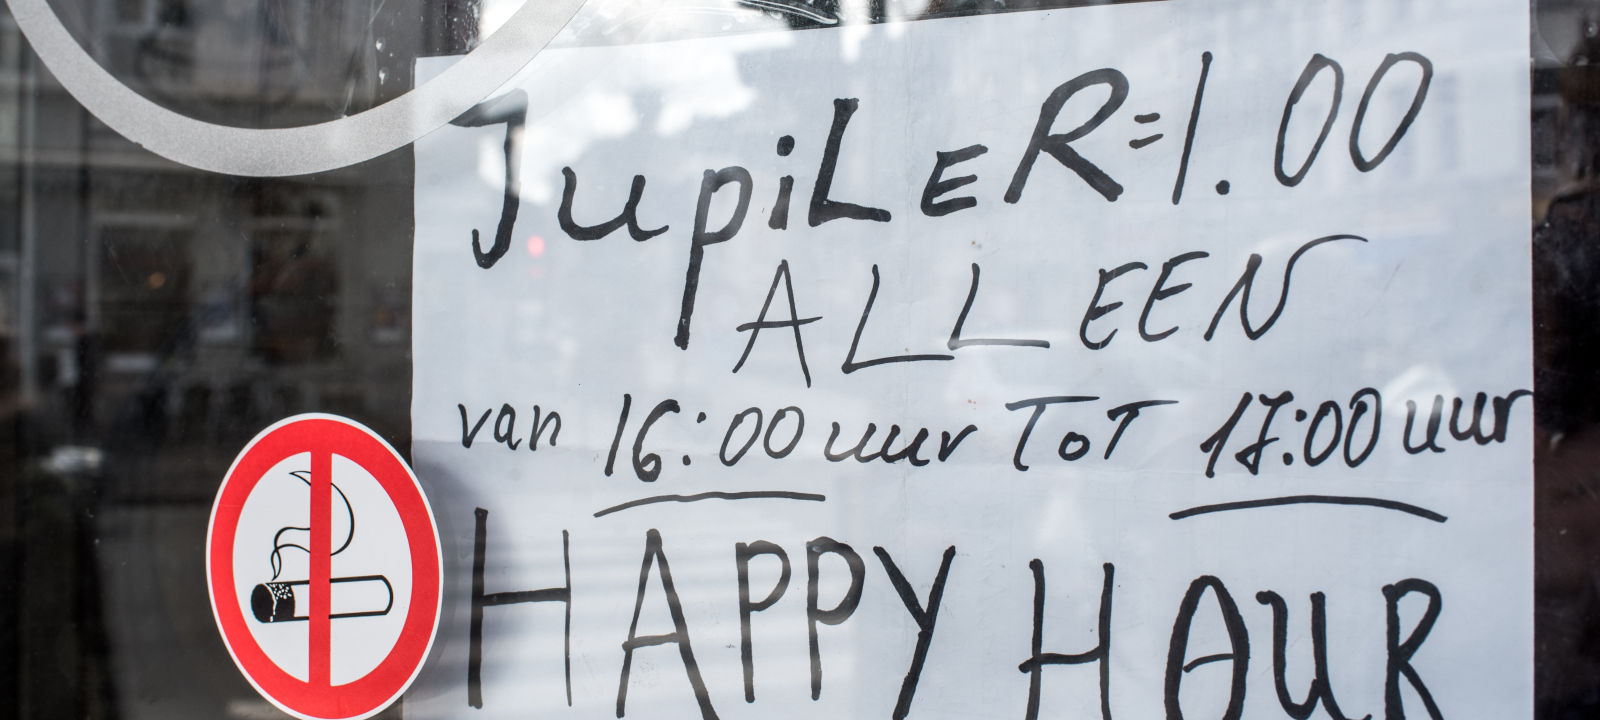 JupiLeR=1.00
ALLEEN
van 16:00 uur ToT 17:00 uur
HAPPY HAUR